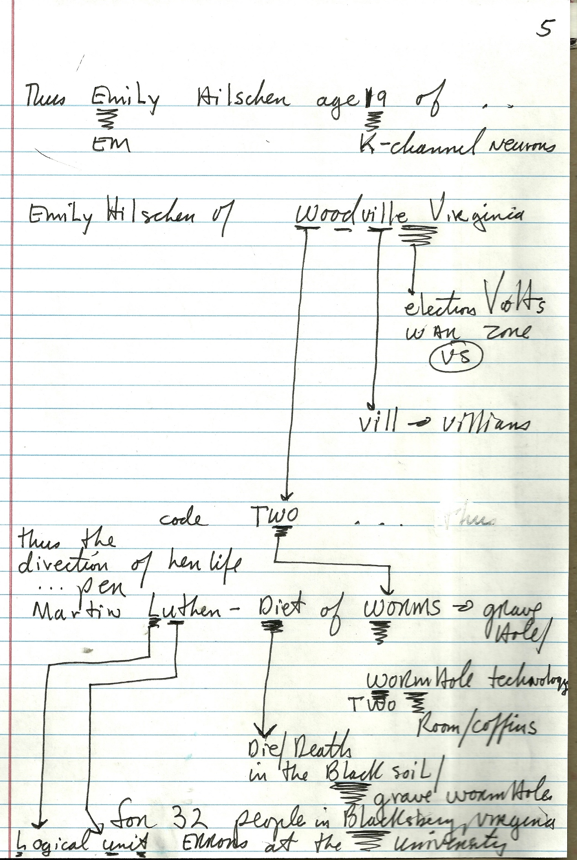 5
Thus Emily Hilschen age 19 of . .
EM K-channel Neurons
Emily Hilschen of Woodville Virginia
electron Volts
WAR zone
VS
vill → villians
code TWO . . . . Thus
thus the
direction of her life
... per
Martin Luther - Diet of WORMS → grave
Hole/
WORMHole technology
TWO
Room/coffins
Die/Death
in the Black soil/
grave wormHoles
for 32 people in Blacksburg, Virginia
Logical unit ERRORS at the University